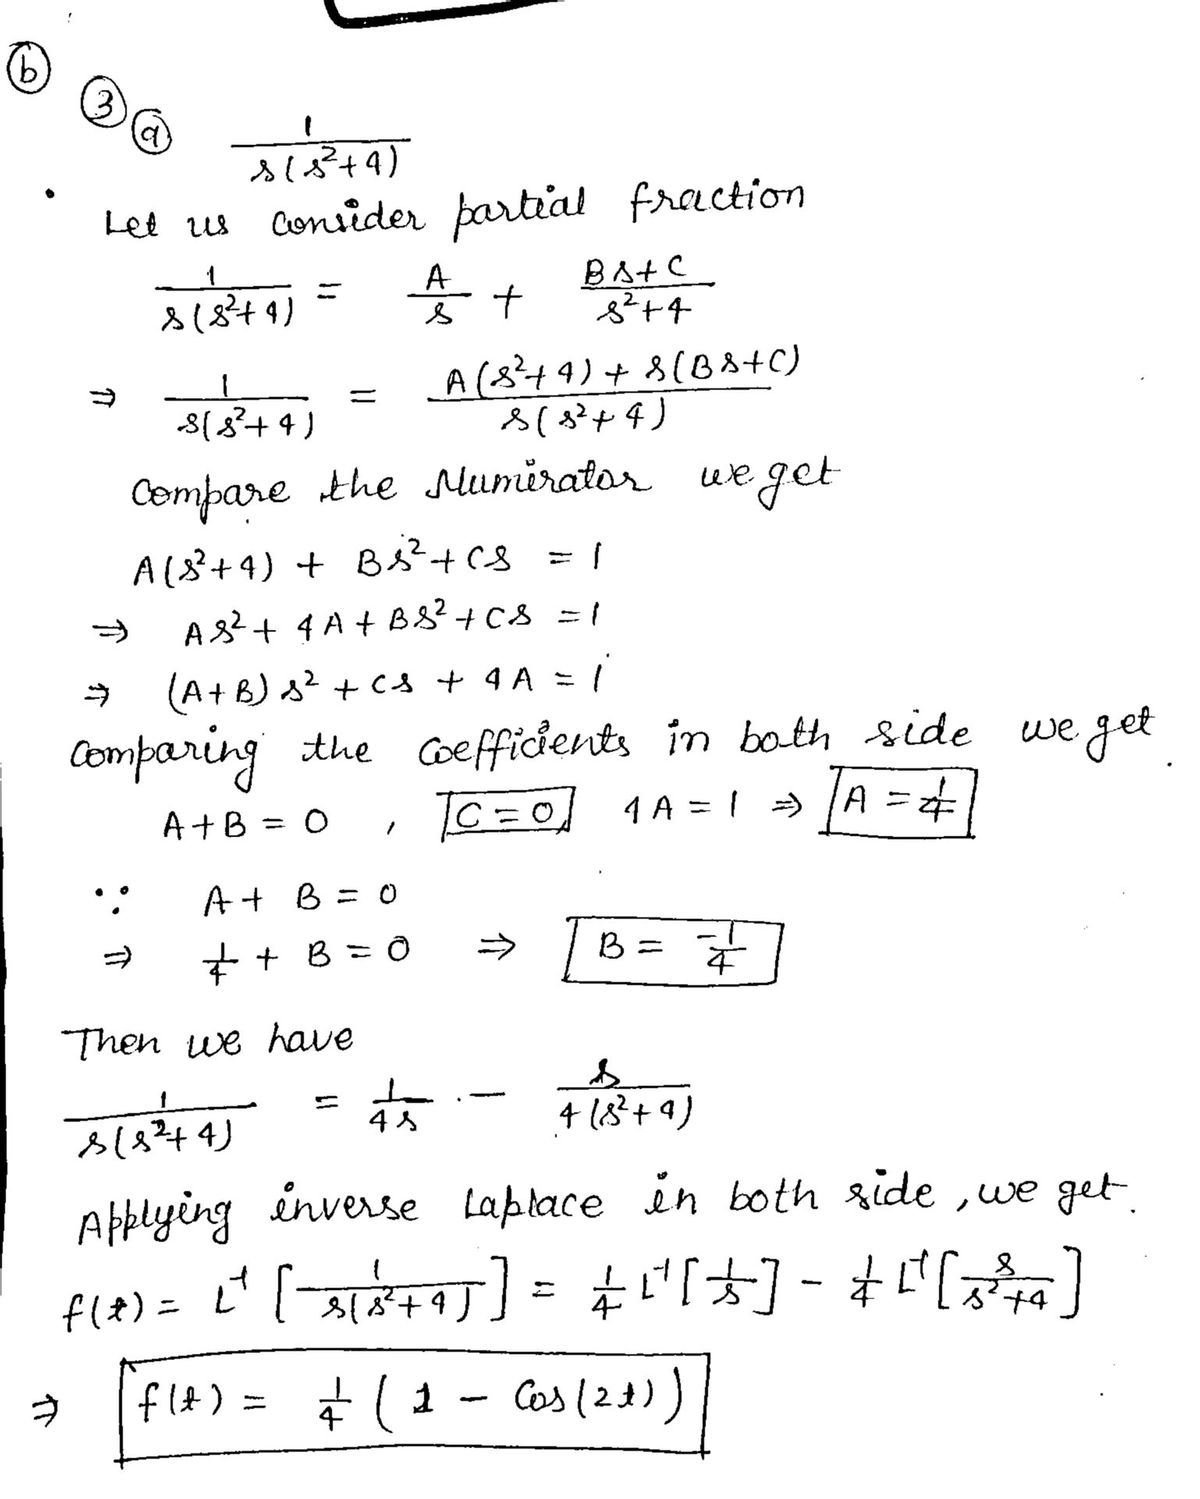 (b)
(3)
(a) 1/(s(s²+4))
Let us consider partial fraction
1/(s(s²+4)) = A/s + (Bs+C)/(s²+4)
⇒ 1/(s(s²+4)) = (A(s²+4) + s(Bs+C))/(s(s²+4))
Compare the Numirator we get
A(s²+4) + Bs²+Cs = 1
⇒ As²+ 4A + Bs² + Cs = 1
⇒ (A+B) s² + Cs + 4A = 1
Comparing the Coefficients in both side we get
A+B = 0 , C = 0 4A = 1 ⇒ A = 1/4
∵ A + B = 0
⇒ 1/4 + B = 0 ⇒ B = -1/4
Then we have
1/(s(s²+4)) = 1/(4s) - s/(4(s²+4))
Applying inverse Laplace in both side, we get.
f(t) = L⁻¹[1/(s(s²+4))] = 1/4 L⁻¹[1/s] - 1/4 L⁻¹[s/(s²+4)]
⇒ f(t) = 1/4 (1 - Cos(2t))